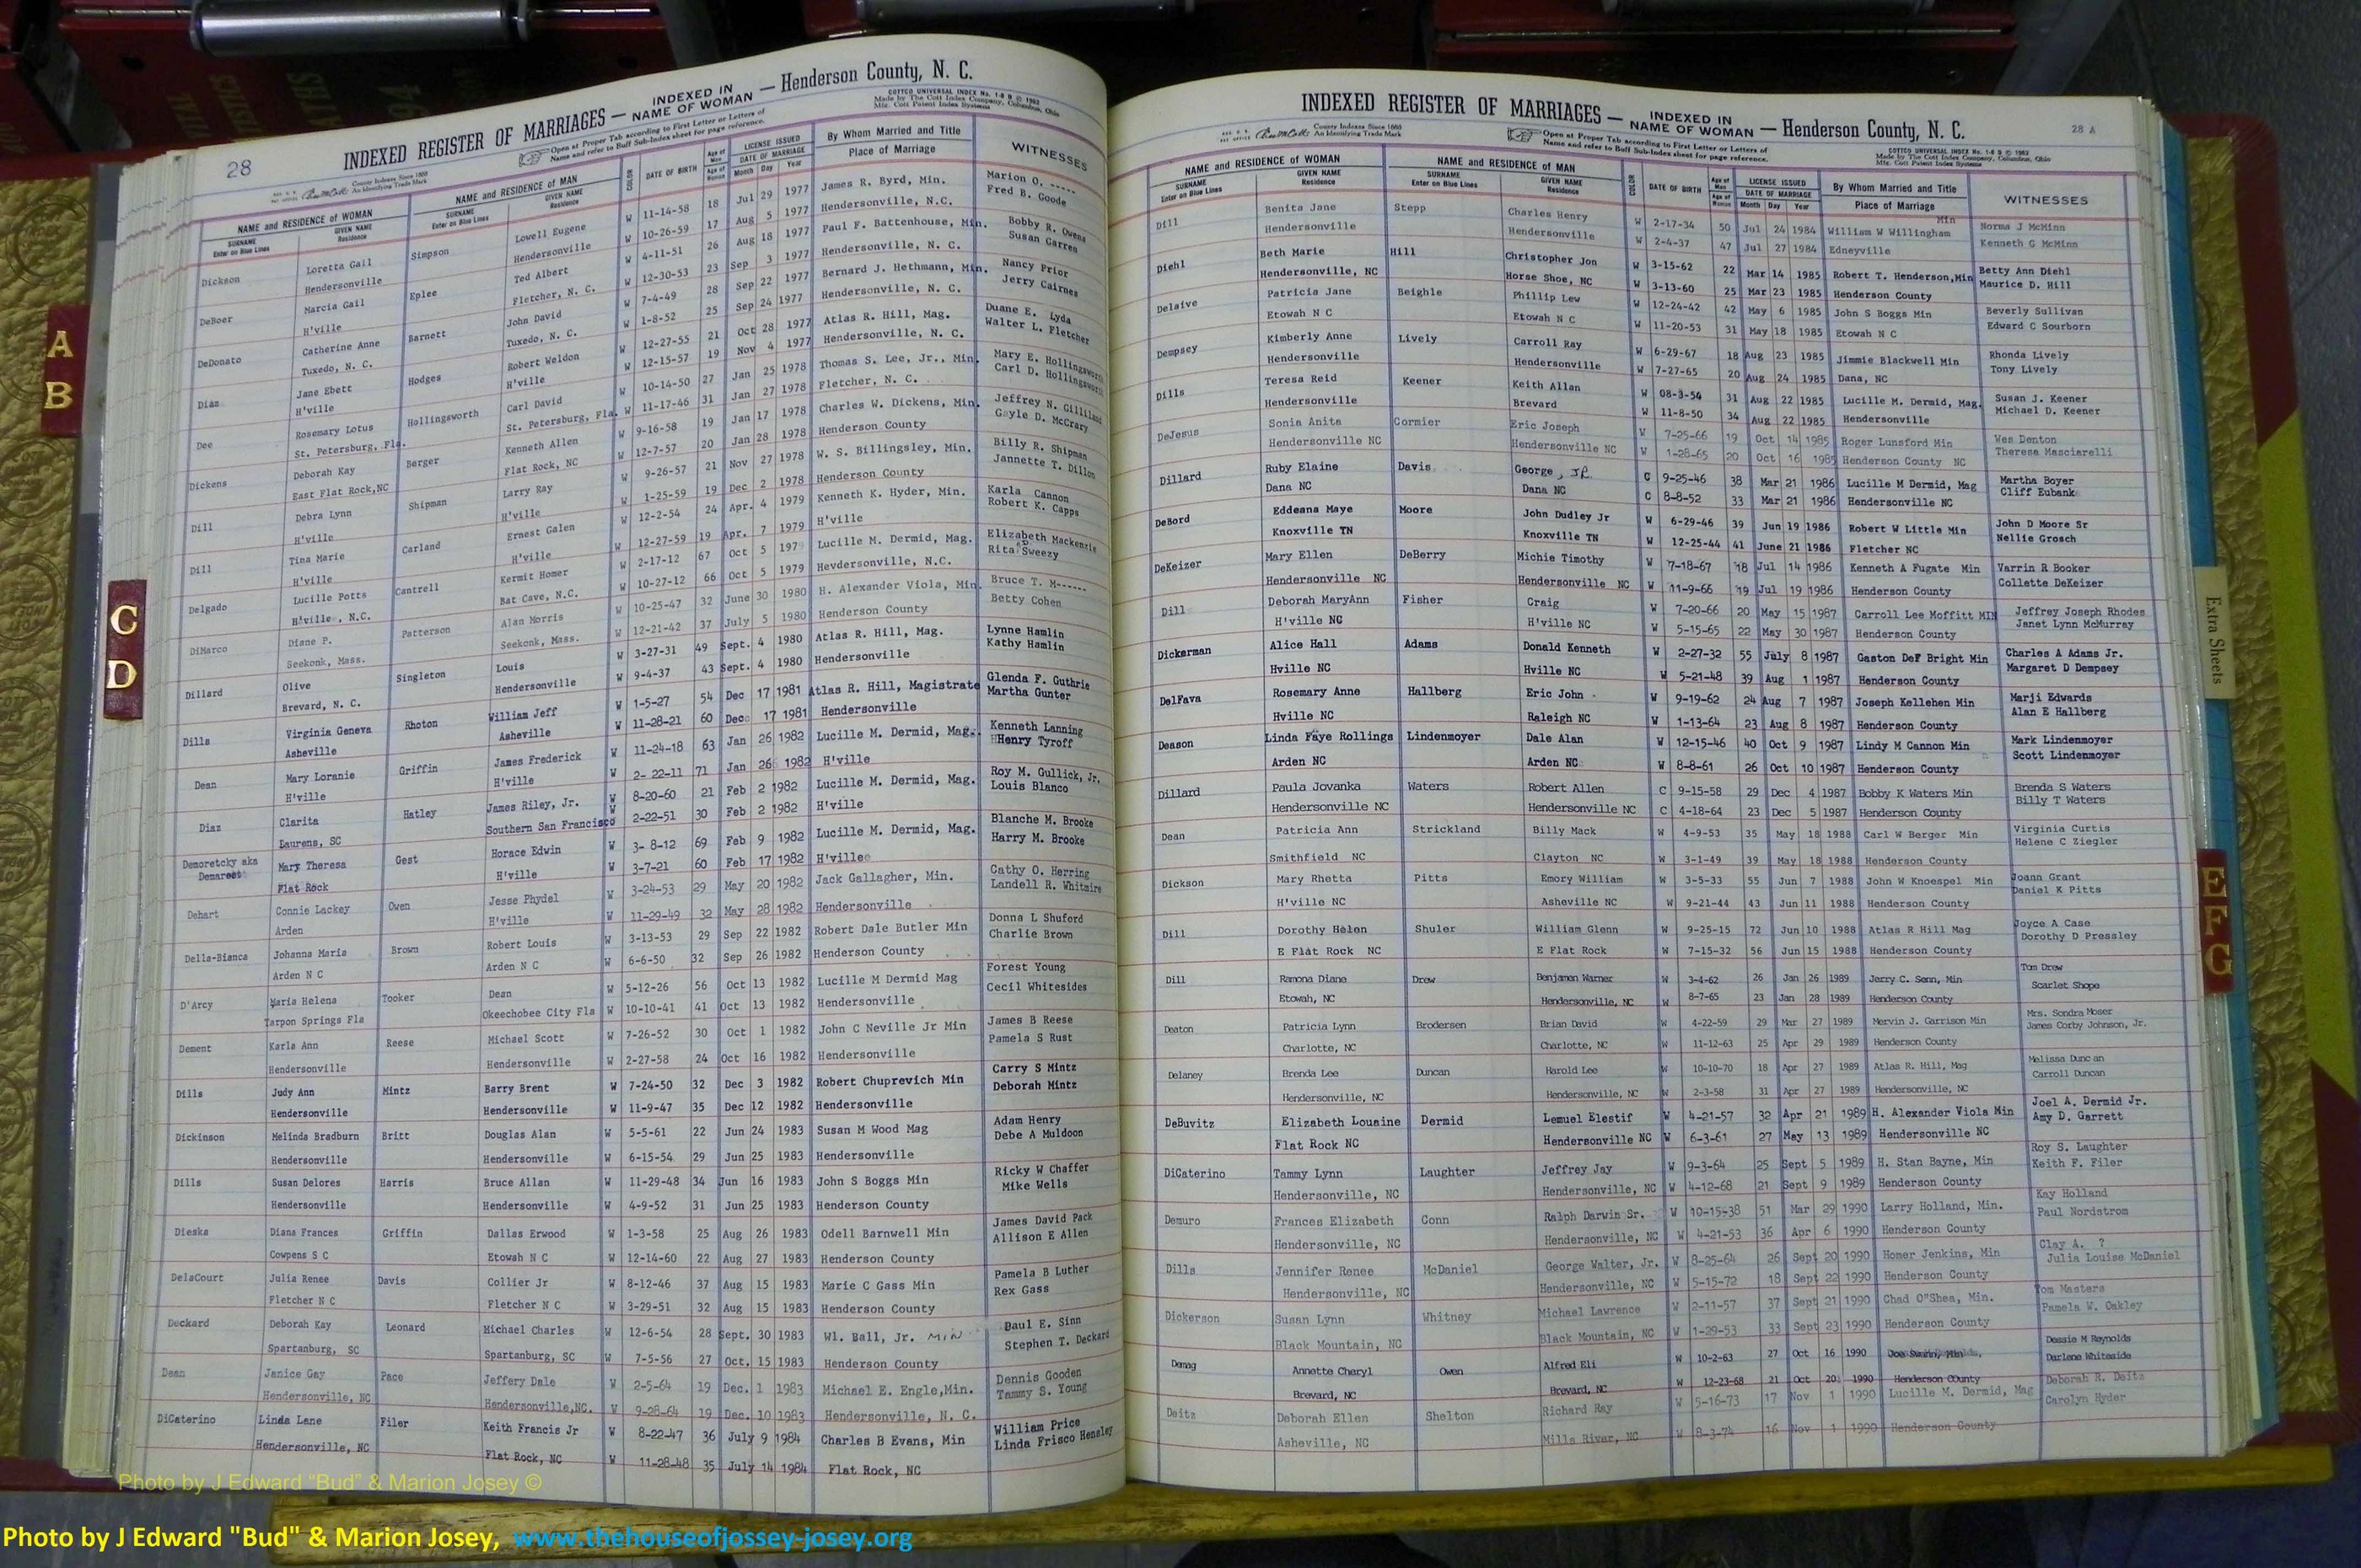 28
INDEXED REGISTER OF MARRIAGES — INDEXED IN NAME OF WOMAN — Henderson County, N. C.
County Indexes Since 1888
An Identifying Trade Mark
Open at Proper Tab according to First Letter or Letters of
Name and refer to Buff Sub-Index sheet for page reference.
COTTCO UNIVERSAL INDEX No. 1-8 B © 1962
Made by The Cott Index Company, Columbus, Ohio
Mfg. Cott Patent Index Systems
NAME and RESIDENCE OF WOMAN NAME and RESIDENCE OF MAN COLOR DATE OF BIRTH Age of Man LICENSE ISSUED By Whom Married and Title WITNESSES
SURNAME GIVEN NAME SURNAME GIVEN NAME Age of Woman DATE OF MARRIAGE Place of Marriage
Enter on Blue Lines Residence Enter on Blue Lines Residence Month Day Year
Dickson Loretta Gail Simpson Lowell Eugene W 11-14-58 18 Jul 29 1977 James R. Byrd, Min. Marion O. -----
Hendersonville Hendersonville W 10-26-59 17 Aug 5 1977 Hendersonville, N.C. Fred B. Goode
DeBoer Marcia Gail Eplee Ted Albert W 4-11-51 26 Aug 18 1977 Paul F. Battenhouse, Min. Bobby R. Owens
H'ville Fletcher, N. C. W 12-30-53 23 Sep 3 1977 Hendersonville, N. C. Susan Garren
DeDonato Catherine Anne Barnett John David W 7-4-49 28 Sep 22 1977 Bernard J. Hethmann, Min. Nancy Prior
Tuxedo, N. C. Tuxedo, N. C. W 1-8-52 25 Sep 24 1977 Hendersonville, N. C. Jerry Cairnes
Diaz Jane Ebett Hodges Robert Weldon W 12-27-55 21 Oct 28 1977 Atlas R. Hill, Mag. Duane E. Lyda
H'ville H'ville W 12-15-57 19 Nov 4 1977 Hendersonville, N. C. Walter L. Fletcher
Dee Rosemary Lotus Hollingsworth Carl David W 10-14-50 27 Jan 25 1978 Thomas S. Lee, Jr., Min. Mary E. Hollingsworth
St. Petersburg, Fla. St. Petersburg, Fla. W 11-17-46 31 Jan 27 1978 Fletcher, N. C. Carl D. Hollingsworth
Dickens Deborah Kay Berger Kenneth Allen W 9-16-58 19 Jan 17 1978 Charles W. Dickens, Min. Jeffrey N. Gilliland
East Flat Rock,NC Flat Rock, NC W 12-7-57 20 Jan 28 1978 Henderson County Gayle D. McCrary
Dill Debra Lynn Shipman Larry Ray W 9-26-57 21 Nov 27 1978 W. S. Billingsley, Min. Billy R. Shipman
H'ville H'ville W 1-25-59 19 Dec 2 1978 Henderson County Jannette T. Dillon
Dill Tina Marie Carland Ernest Galen W 12-2-54 24 Apr. 4 1979 Kenneth K. Hyder, Min. Karla Cannon
H'ville H'ville W 12-27-59 19 Apr. 7 1979 H'ville Robert K. Capps
Delgado Lucille Potts Cantrell Kermit Homer W 2-17-12 67 Oct 5 1979 Lucille M. Dermid, Mag. Elizabeth Mackenzie
H'ville, N.C. Bat Cave, N.C. W 10-27-12 66 Oct 5 1979 Hevdersonville, N.C. Rita Sweezy
DiMarco Diane P. Patterson Alan Morris W 10-25-47 32 June 30 1980 H. Alexander Viola, Min. Bruce T. M------
Seekonk, Mass. Seekonk, Mass. W 12-21-42 37 July 5 1980 Henderson County Betty Cohen
Dillard Olive Singleton Louis W 3-27-31 49 Sept. 4 1980 Atlas R. Hill, Mag. Lynne Hamlin
Brevard, N. C. Hendersonville W 9-4-37 43 Sept. 4 1980 Hendersonville Kathy Hamlin
Dills Virginia Geneva Rhoton William Jeff W 1-5-27 54 Dec 17 1981 Atlas R. Hill, Magistrate Glenda F. Guthrie
Asheville Asheville W 11-28-21 60 Dec 17 1981 Hendersonville Martha Gunter
Dean Mary Loranie Griffin James Frederick W 11-24-18 63 Jan 26 1982 Lucille M. Dermid, Mag. Kenneth Lanning
H'ville H'ville W 2- 22-11 71 Jan 26 1982 H'ville Henry Tyroff
Diaz Clarita Hatley James Riley, Jr. W 8-20-60 21 Feb 2 1982 Lucille M. Dermid, Mag. Roy M. Gullick, Jr.
Laurens, SC Southern San Francisco W 2-22-51 30 Feb 2 1982 H'ville Louis Blanco
Demoretcky aka Mary Theresa Gest Horace Edwin W 3- 8-12 69 Feb 9 1982 Lucille M. Dermid, Mag. Blanche M. Brooke
Demarest Flat Rock H'ville W 3-7-21 60 Feb 17 1982 H'ville Harry M. Brooke
Dehart Connie Lackey Owen Jesse Phydel W 3-24-53 29 May 20 1982 Jack Gallagher, Min. Cathy O. Herring
Arden H'ville W 11-29-49 32 May 28 1982 Hendersonville Landell R. Whitmire
Della-Bianca Johanna Maria Brown Robert Louis W 3-13-53 29 Sep 22 1982 Robert Dale Butler Min Donna L Shuford
Arden N C Arden N C W 6-6-50 32 Sep 26 1982 Henderson County Charlie Brown
D'Arcy Maria Helena Tooker Dean W 5-12-26 56 Oct 13 1982 Lucille M Dermid Mag Forest Young
Tarpon Springs Fla Okeechobee City Fla W 10-10-41 41 Oct 13 1982 Hendersonville Cecil Whitesides
Dement Karla Ann Reese Michael Scott W 7-26-52 30 Oct 1 1982 John C Neville Jr Min James B Reese
Hendersonville Hendersonville W 2-27-58 24 Oct 16 1982 Hendersonville Pamela S Rust
Dills Judy Ann Mintz Barry Brent W 7-24-50 32 Dec 3 1982 Robert Chuprevich Min Carry S Mintz
Hendersonville Hendersonville W 11-9-47 35 Dec 12 1982 Hendersonville Deborah Mintz
Dickinson Melinda Bradburn Britt Douglas Alan W 5-5-61 22 Jun 24 1983 Susan M Wood Mag Adam Henry
Hendersonville Hendersonville W 6-15-54 29 Jun 25 1983 Hendersonville Debe A Muldoon
Dills Susan Delores Harris Bruce Allan W 11-29-48 34 Jun 16 1983 John S Boggs Min Ricky W Chaffer
Hendersonville Hendersonville W 4-9-52 31 Jun 25 1983 Henderson County Mike Wells
Dieska Diana Frances Griffin Dallas Erwood W 1-3-58 25 Aug 26 1983 Odell Barnwell Min James David Pack
Cowpens S C Etowah N C W 12-14-60 22 Aug 27 1983 Henderson County Allison E Allen
DelaCourt Julia Renee Davis Collier Jr W 8-12-46 37 Aug 15 1983 Marie C Gass Min Pamela B Luther
Fletcher N C Fletcher N C W 3-29-51 32 Aug 15 1983 Henderson County Rex Gass
Deckard Deborah Kay Leonard Michael Charles W 12-6-54 28 Sept. 30 1983 Wl. Ball, Jr. MIN Paul E. Sinn
Spartanburg, SC Spartanburg, SC W 7-5-56 27 Oct. 15 1983 Henderson County Stephen T. Deckard
Dean Janice Gay Pace Jeffery Dale W 2-5-64 19 Dec. 1 1983 Michael E. Engle,Min. Dennis Gooden
Hendersonville, NC Hendersonville,NC. W 9-28-64 19 Dec. 10 1983 Hendersonville, N. C. Tammy S. Young
DiCaterino Linda Lane Filer Keith Francis Jr W 8-22-47 36 July 9 1984 Charles B Evans, Min William Price
Hendersonville, NC Flat Rock, NC W 11-28-48 35 July 14 1984 Flat Rock, NC Linda Frisco Hensley
28 A
INDEXED REGISTER OF MARRIAGES — INDEXED IN NAME OF WOMAN — Henderson County, N. C.
County Indexes Since 1888
An Identifying Trade Mark
Open at Proper Tab according to First Letter or Letters of
Name and refer to Buff Sub-Index sheet for page reference.
COTTCO UNIVERSAL INDEX No. 1-8 B © 1962
Made by The Cott Index Company, Columbus, Ohio
Mfg. Cott Patent Index Systems
NAME and RESIDENCE OF WOMAN NAME and RESIDENCE OF MAN COLOR DATE OF BIRTH Age of Man LICENSE ISSUED By Whom Married and Title WITNESSES
SURNAME GIVEN NAME SURNAME GIVEN NAME Age of Woman DATE OF MARRIAGE Place of Marriage
Enter on Blue Lines Residence Enter on Blue Lines Residence Month Day Year
Dill Benita Jane Stepp Charles Henry W 2-17-34 50 Jul 24 1984 William W Willingham Min Norma J McMinn
Hendersonville Hendersonville W 2-4-37 47 Jul 27 1984 Edneyville Kenneth G McMinn
Diehl Beth Marie Hill Christopher Jon W 3-15-62 22 Mar 14 1985 Robert T. Henderson,Min Betty Ann Diehl
Hendersonville, NC Horse Shoe, NC W 3-13-60 25 Mar 23 1985 Henderson County Maurice D. Hill
Delaive Patricia Jane Beighle Phillip Lew W 12-24-42 42 May 6 1985 John S Boggs Min Beverly Sullivan
Etowah N C Etowah N C W 11-20-53 31 May 18 1985 Etowah N C Edward C Sourborn
Dempsey Kimberly Anne Lively Carroll Ray W 6-29-67 18 Aug 23 1985 Jimmie Blackwell Min Rhonda Lively
Hendersonville Hendersonville W 7-27-65 20 Aug 24 1985 Dana, NC Tony Lively
Dills Teresa Reid Keener Keith Allan W 08-3-54 31 Aug 22 1985 Lucille M. Dermid, Mag. Susan J. Keener
Hendersonville Brevard W 11-8-50 34 Aug 22 1985 Hendersonville Michael D. Keener
DeJesus Sonia Anita Cormier Eric Joseph W 7-25-66 19 Oct 14 1985 Roger Lunsford Min Wes Denton
Hendersonville NC Hendersonville NC W 1-28-65 20 Oct 16 1985 Henderson County NC Theresa Masciarelli
Dillard Ruby Elaine Davis George, JR. C 9-25-46 38 Mar 21 1986 Lucille M Dermid, Mag Martha Boyer
Dana NC Dana NC C 8-8-52 33 Mar 21 1986 Hendersonville NC Cliff Eubank
DeBord Eddeana Maye Moore John Dudley Jr W 6-29-46 39 Jun 19 1986 Robert W Little Min John D Moore Sr
Knoxville TN Knoxville TN W 12-25-44 41 June 21 1986 Fletcher NC Nellie Grosch
DeKeizer Mary Ellen DeBerry Michie Timothy W 7-18-67 18 Jul 14 1986 Kenneth A Fugate Min Varrin R Booker
Hendersonville NC Hendersonville NC W 11-9-66 19 Jul 19 1986 Henderson County Collette DeKeizer
Dill Deborah MaryAnn Fisher Craig W 7-20-66 20 May 15 1987 Carroll Lee Moffitt MIN Jeffrey Joseph Rhodes
H'ville NC H'ville NC W 5-15-65 22 May 30 1987 Henderson County Janet Lynn McMurray
Dickerman Alice Hall Adams Donald Kenneth W 2-27-32 55 July 8 1987 Gaston DeF Bright Min Charles A Adams Jr.
Hville NC Hville NC W 5-21-48 39 Aug 1 1987 Henderson County Margaret D Dempsey
DelFava Rosemary Anne Hallberg Eric John W 9-19-62 24 Aug 7 1987 Joseph Kellehen Min Marji Edwards
Hville NC Raleigh NC W 1-13-64 23 Aug 8 1987 Henderson County Alan E Hallberg
Deason Linda Faye Rollings Lindenmoyer Dale Alan W 12-15-46 40 Oct 9 1987 Lindy M Cannon Min Mark Lindenmoyer
Arden NC Arden NC W 8-8-61 26 Oct 10 1987 Henderson County Scott Lindenmoyer
Dillard Paula Jovanka Waters Robert Allen C 9-15-58 29 Dec 4 1987 Bobby K Waters Min Brenda S Waters
Hendersonville NC Hendersonville NC C 4-18-64 23 Dec 5 1987 Henderson County Billy T Waters
Dean Patricia Ann Strickland Billy Mack W 4-9-53 35 May 18 1988 Carl W Berger Min Virginia Curtis
Smithfield NC Clayton NC W 3-1-49 39 May 18 1988 Henderson County Helene C Ziegler
Dickson Mary Rhetta Pitts Emory William W 3-5-33 55 Jun 7 1988 John W Knoespel Min Joann Grant
H'ville NC Asheville NC W 9-21-44 43 Jun 11 1988 Henderson County Daniel K Pitts
Dill Dorothy Helen Shuler William Glenn W 9-25-15 72 Jun 10 1988 Atlas R Hill Mag Joyce A Case
E Flat Rock NC E Flat Rock W 7-15-32 56 Jun 15 1988 Henderson County Dorothy D Pressley
Dill Ramona Diane Drew Benjamen Warner W 3-4-62 26 Jan 26 1989 Jerry C. Senn, Min Tom Drew
Etowah, NC Hendersonville, NC W 8-7-65 23 Jan 28 1989 Henderson County Scarlet Shope
Deaton Patricia Lynn Brodersen Brian David W 4-22-59 29 Mar 27 1989 Mervin J. Garrison Min Mrs. Sondra Moser
Charlotte, NC Charlotte, NC W 11-12-63 25 Apr 29 1989 Henderson County James Corby Johnson, Jr.
Delaney Brenda Lee Duncan Harold Lee W 10-10-70 18 Apr 27 1989 Atlas R. Hill, Mag Melissa Duncan
Hendersonville, NC Hendersonville, NC W 2-3-58 31 Apr 27 1989 Hendersonville, NC Carroll Duncan
DeBuvitz Elizabeth Louaine Dermid Lemuel Elestif W 4-21-57 32 Apr 21 1989 H. Alexander Viola Min Joel A. Dermid Jr.
Flat Rock NC Hendersonville NC W 6-3-61 27 May 13 1989 Hendersonville NC Amy D. Garrett
DiCaterino Tammy Lynn Laughter Jeffrey Jay W 9-3-64 25 Sept 5 1989 H. Stan Bayne, Min Roy S. Laughter
Hendersonville, NC Hendersonville, NC W 4-12-68 21 Sept 9 1989 Henderson County Keith F. Filer
Demuro Frances Elizabeth Conn Ralph Darwin Sr. W 10-15-38 51 Mar 29 1990 Larry Holland, Min. Kay Holland
Hendersonville, NC Hendersonville, NC W 4-21-53 36 Apr 6 1990 Henderson County Paul Nordstrom
Dills Jennifer Renee McDaniel George Walter, Jr. W 8-25-64 26 Sept 20 1990 Homer Jenkins, Min Clay A. ?
Hendersonville, NC Hendersonville, NC W 5-15-72 18 Sept 22 1990 Henderson County Julia Louise McDaniel
Dickerson Susan Lynn Whitney Michael Lawrence W 2-11-57 37 Sept 21 1990 Chad O"Shea, Min. Tom Masters
Black Mountain, NC Black Mountain, NC W 1-29-53 33 Sept 23 1990 Henderson County Pamela W. Oakley
Demag Annette Cheryl Owen Alfred Eli W 10-2-63 27 Oct 16 1990 Dessie M Reynolds
Brevard, NC Brevard, NC W 12-23-68 21 Oct 20 1990 Henderson County Darlene Whiteside
Deitz Deborah Ellen Shelton Richard Ray W 5-16-73 17 Nov 1 1990 Lucille M. Dermid, Mag Deborah R. Deitz
Asheville, NC Mills River, NC W 8-3-74 16 Nov 1 1990 Henderson County Carolyn Hyder
A
B
C
D
Extra Sheets
E
F
G
Photo by J Edward "Bud" & Marion Josey ©
Photo by J Edward "Bud" & Marion Josey, www.thehouseofjossey-josey.org